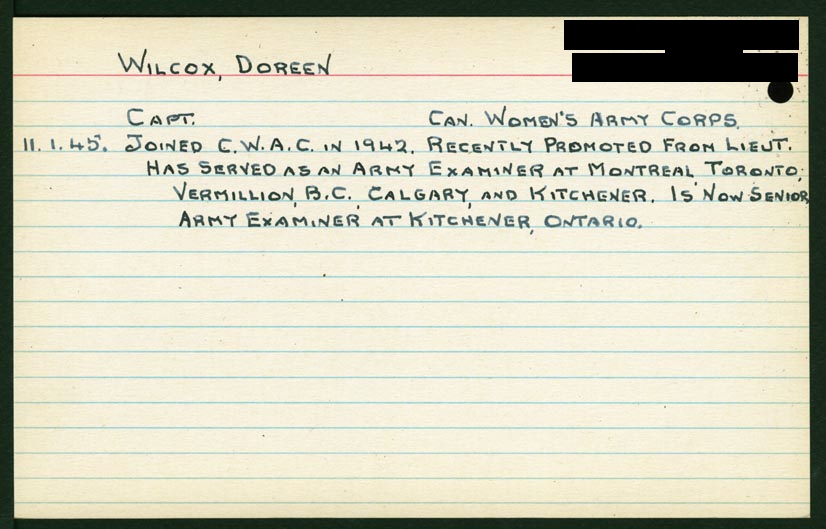 WILCOX, DOREEN
CAPT. CAN. WOMEN'S ARMY CORPS.
11.1.45. JOINED C.W.A.C. IN 1942. RECENTLY PROMOTED FROM LIEUT.
HAS SERVED AS AN ARMY EXAMINER AT MONTREAL TORONTO,
VERMILLION, B.C. CALGARY, AND KITCHENER. IS NOW SENIOR
ARMY EXAMINER AT KITCHENER, ONTARIO.